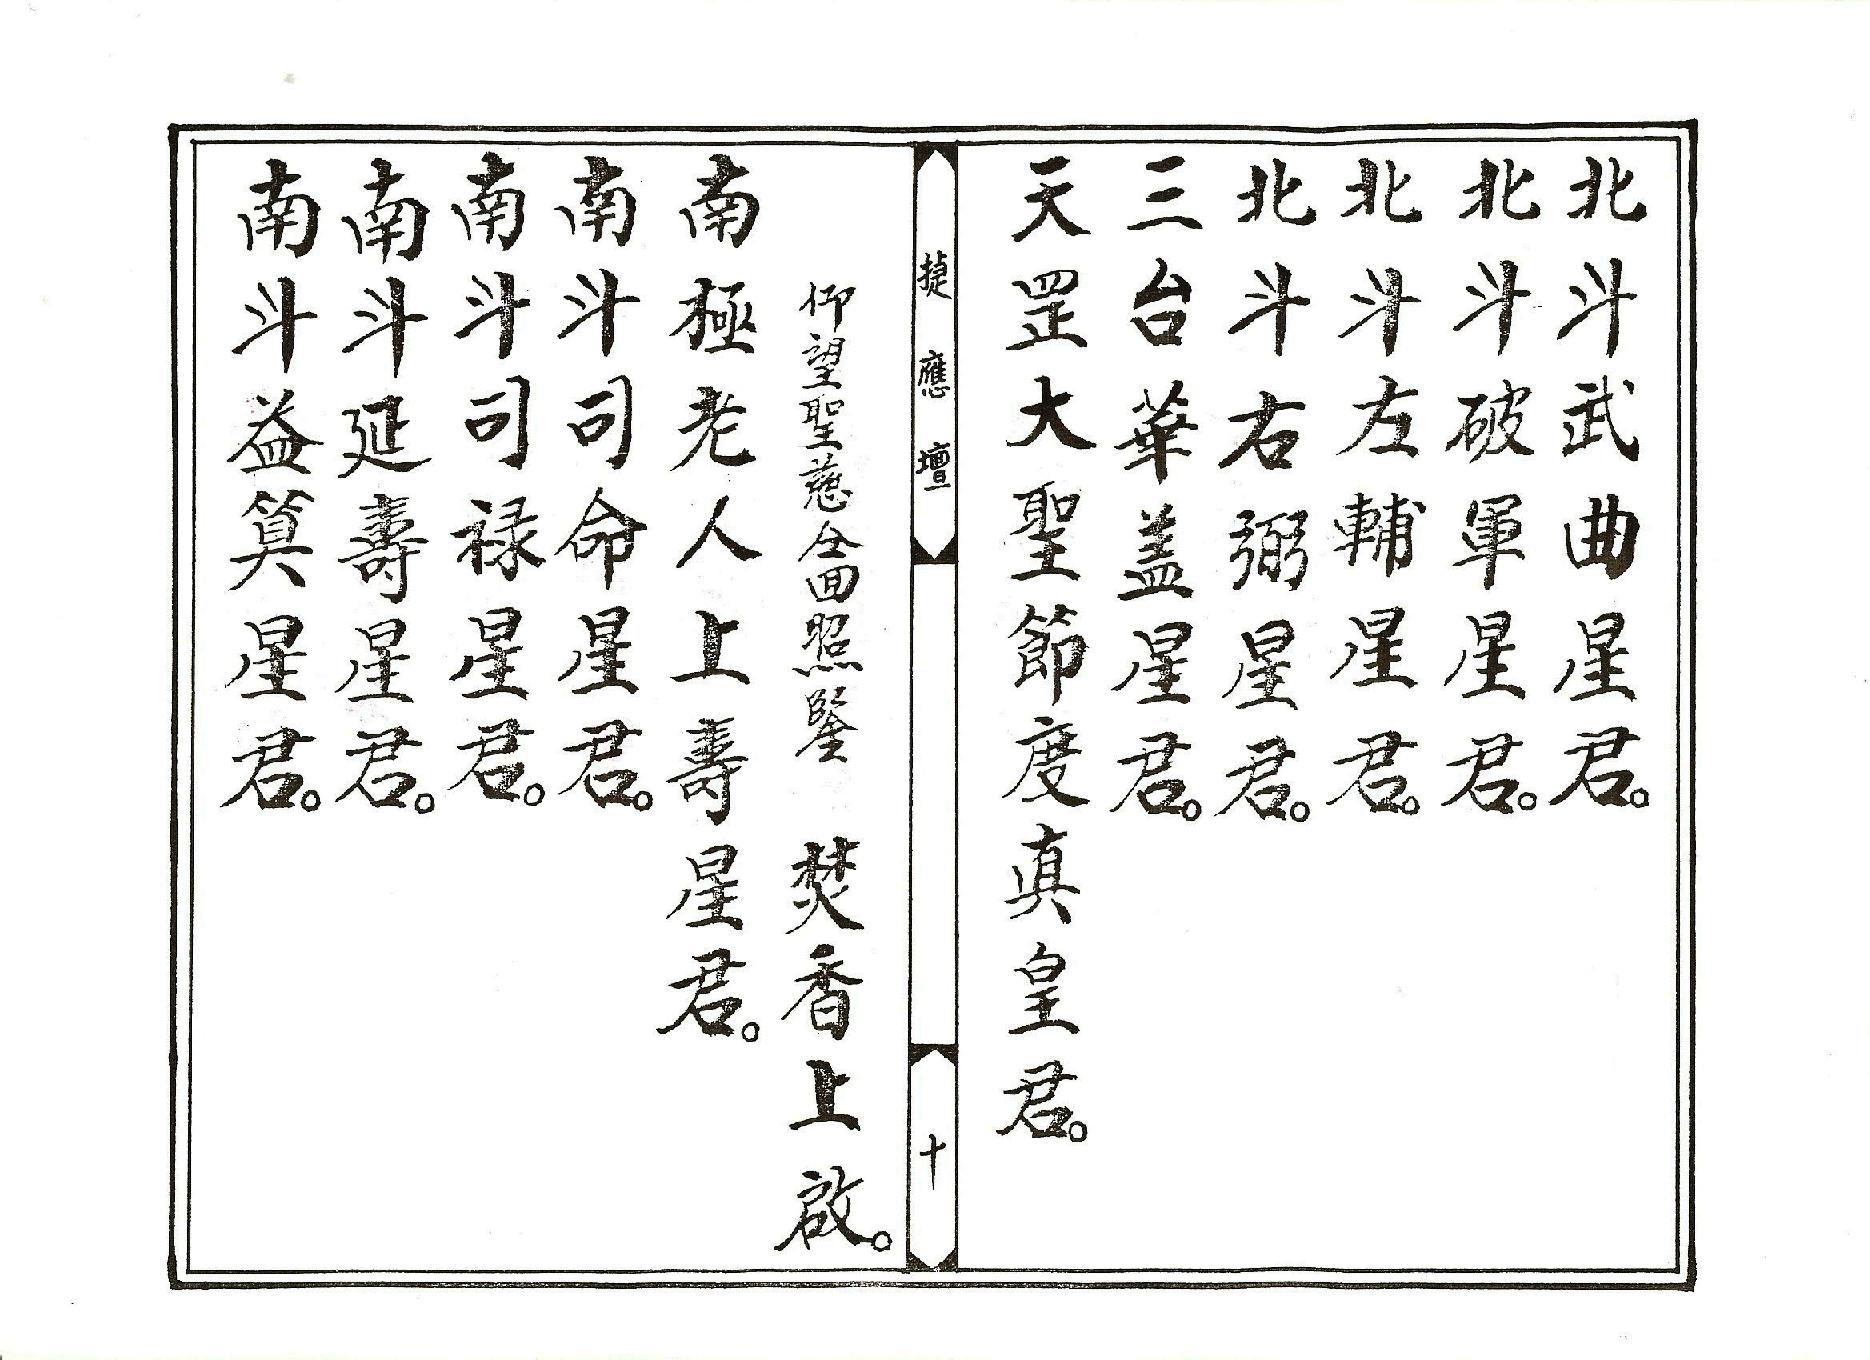 北斗武曲星君。
北斗破軍星君。
北斗左輔星君。
北斗右弼星君。
三台華蓋星君。
天罡大聖節度真皇君。
捷應壇
十
仰望聖慈仝回照鑒 焚香上啟。
南極老人上壽星君。
南斗司命星君。
南斗司禄星君。
南斗延壽星君。
南斗益算星君。